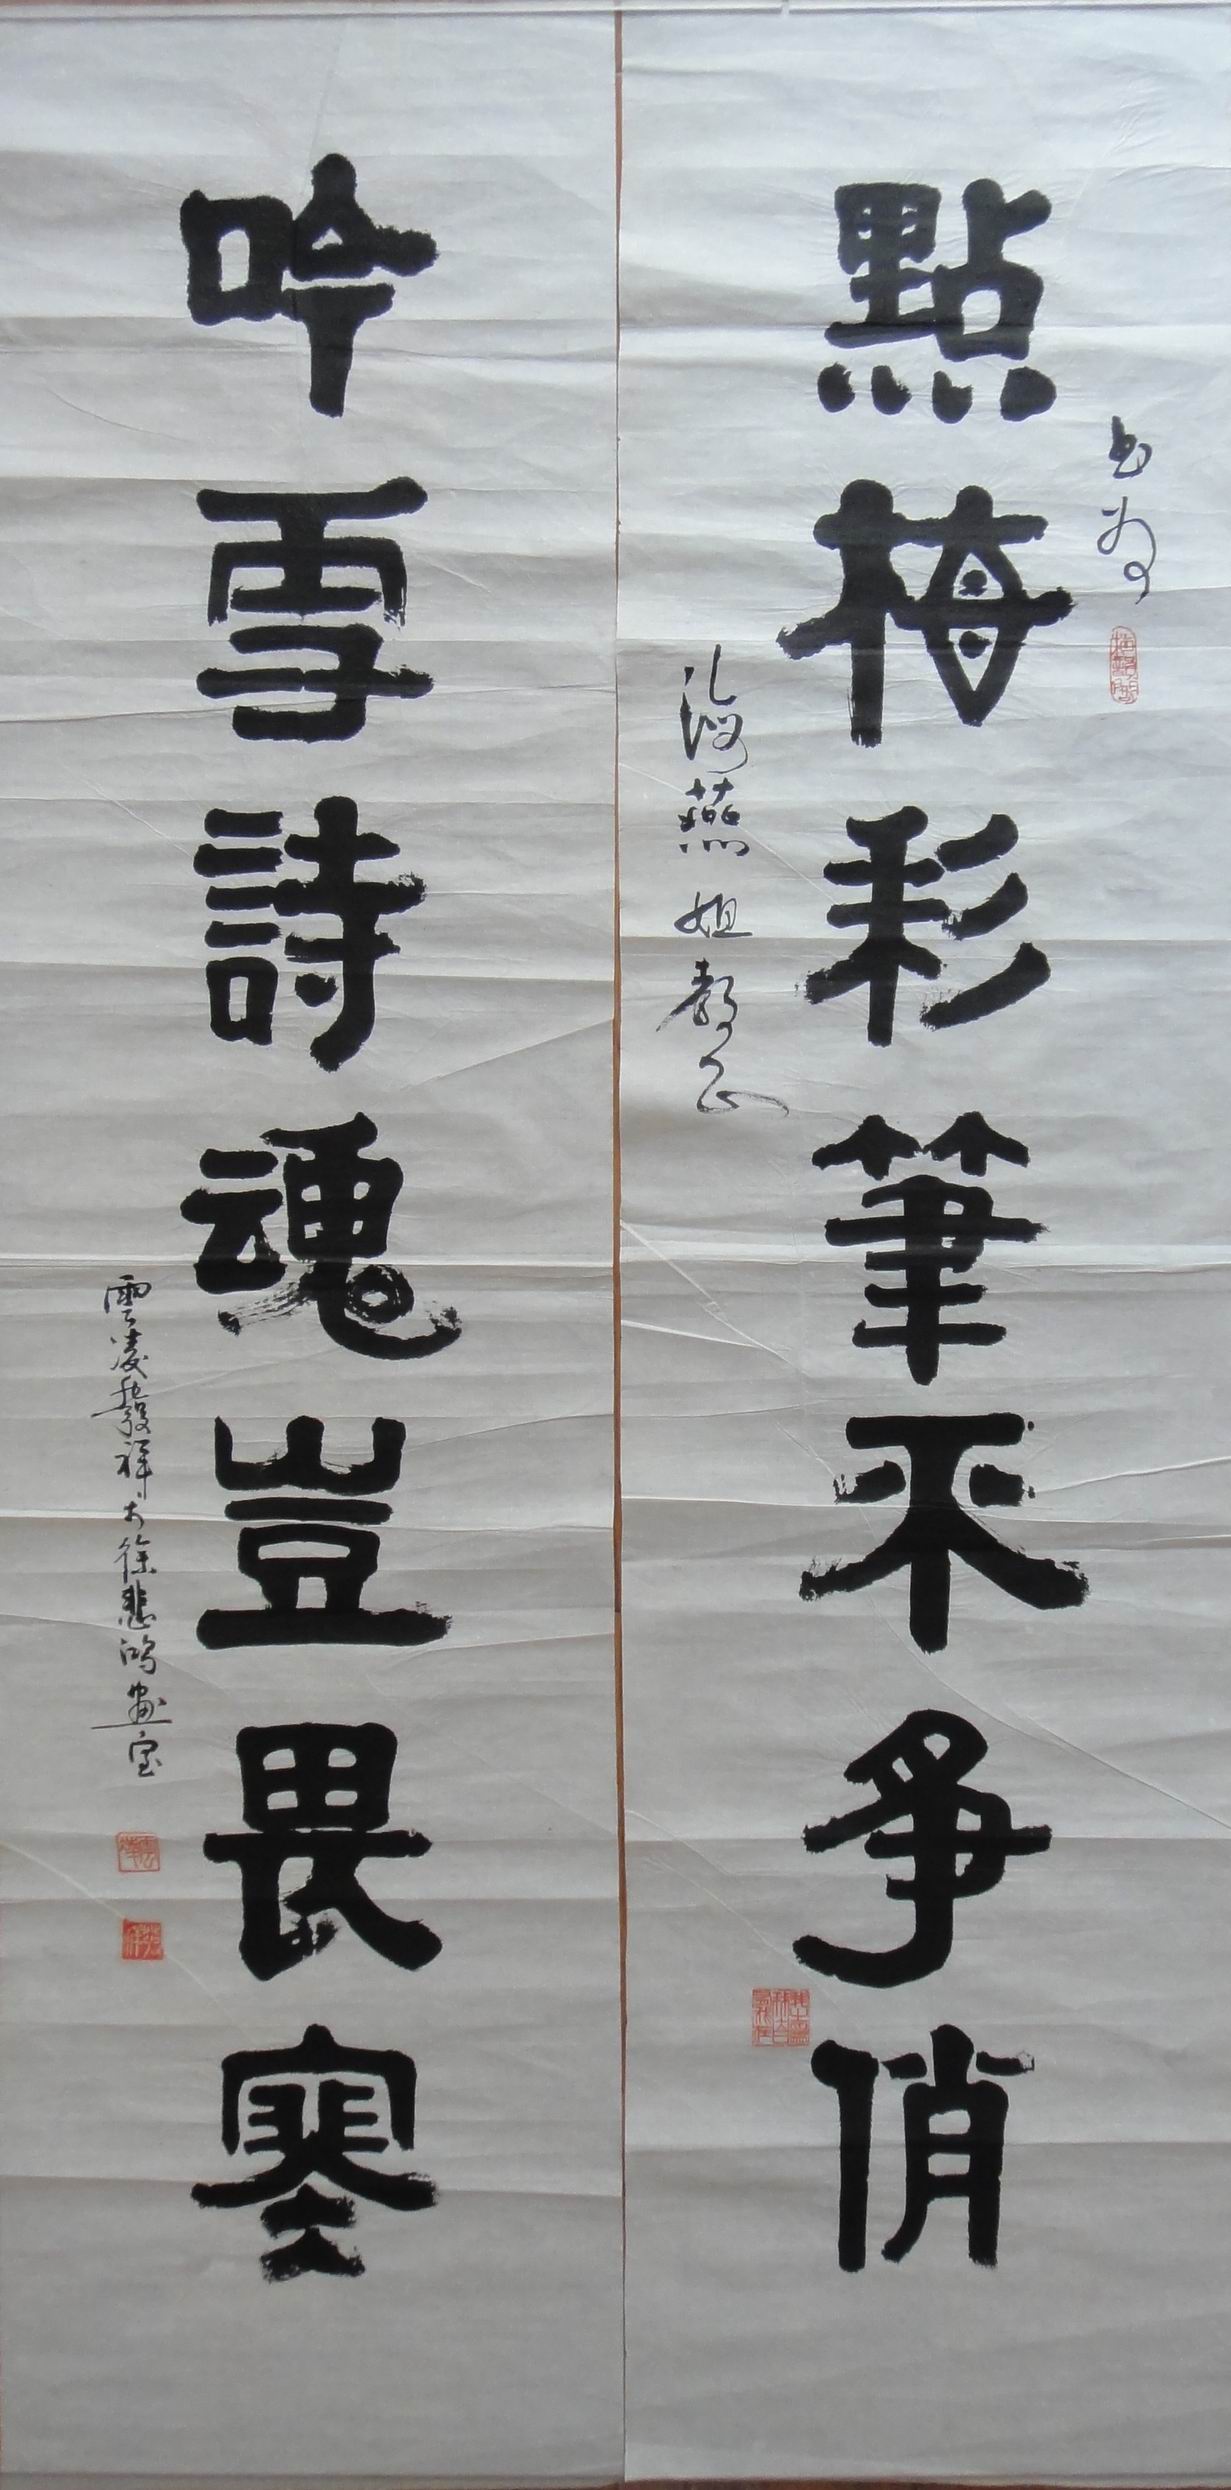 點梅彩筆不爭俏
書為
海燕姐教正
吟雪詩魂豈畏寒
雲凌發祥於徐悲鴻畫室